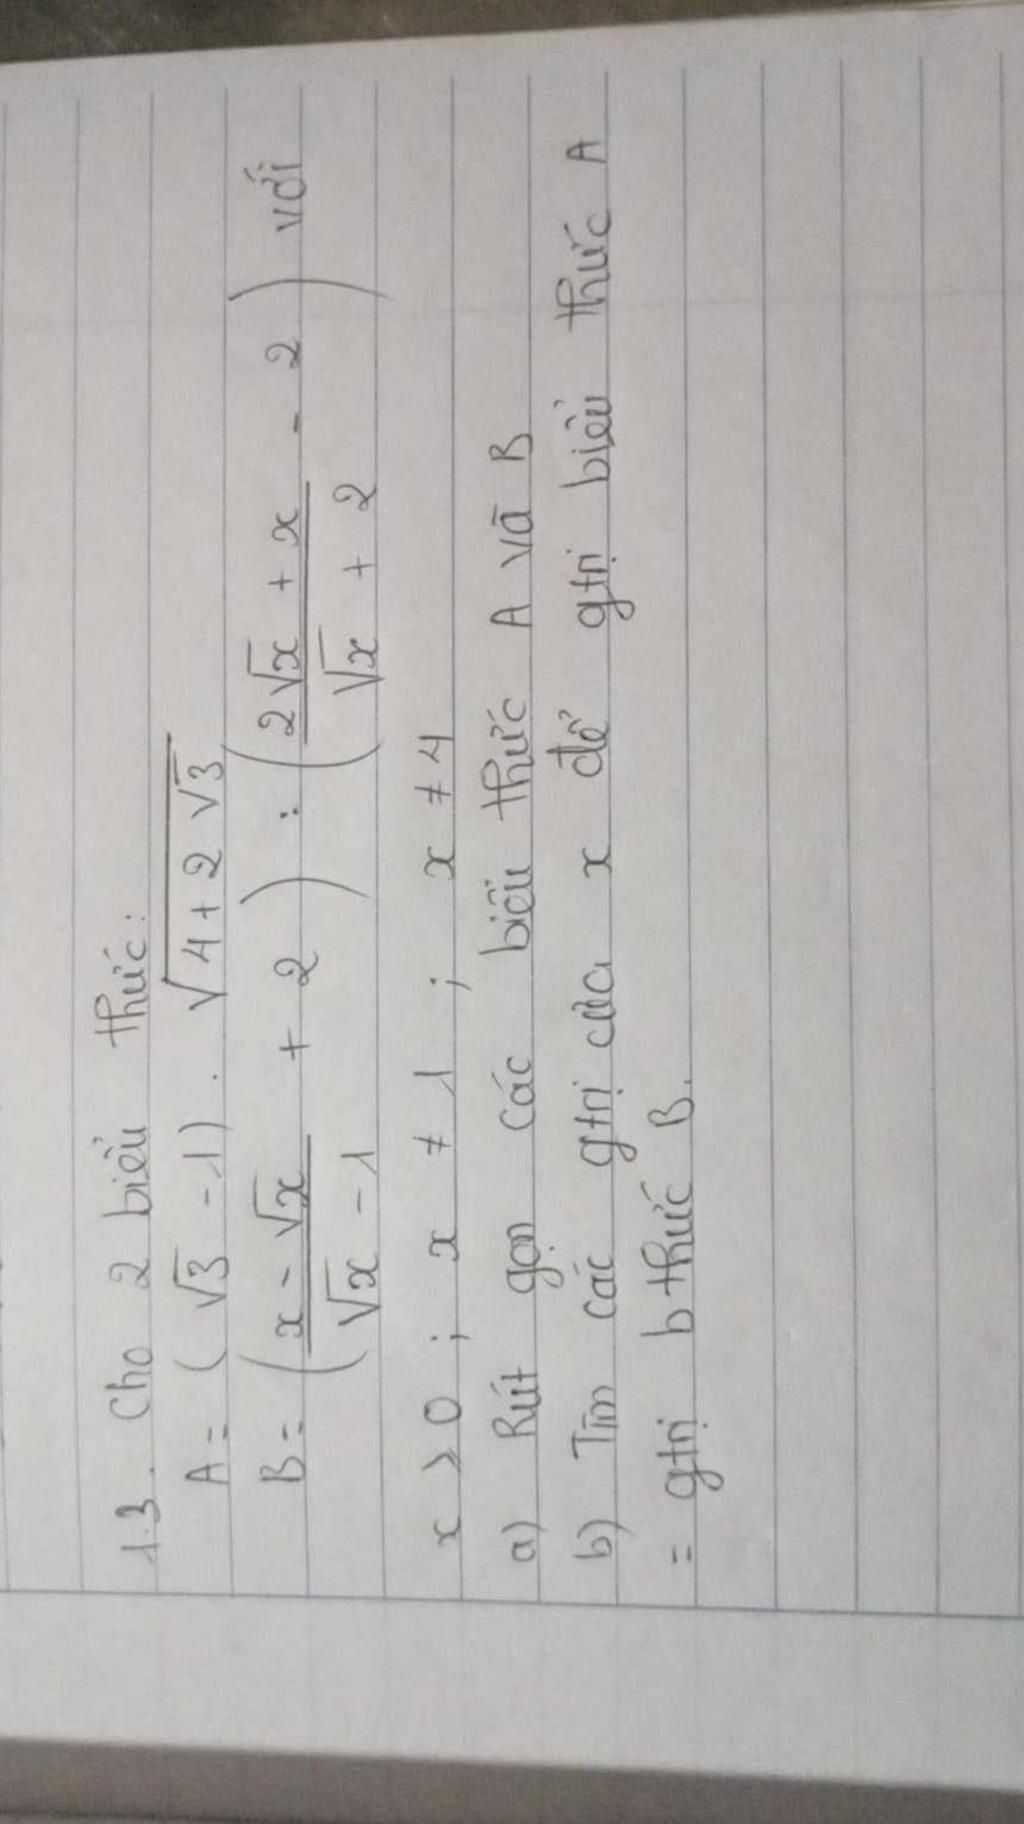 1.3. Cho 2 biểu thức:
A = (√3 - 1) . √(4 + 2√3)
B = ((x - √x)/(√x - 1) + 2) : ((2√x + x)/(√x + 2) - 2) với
x ⩾ 0 ; x ≠ 1 ; x ≠ 4
a) Rút gọn các biểu thức A và B
b) Tìm các gtrị của x để gtrị biểu thức A
= gtrị b thức B.